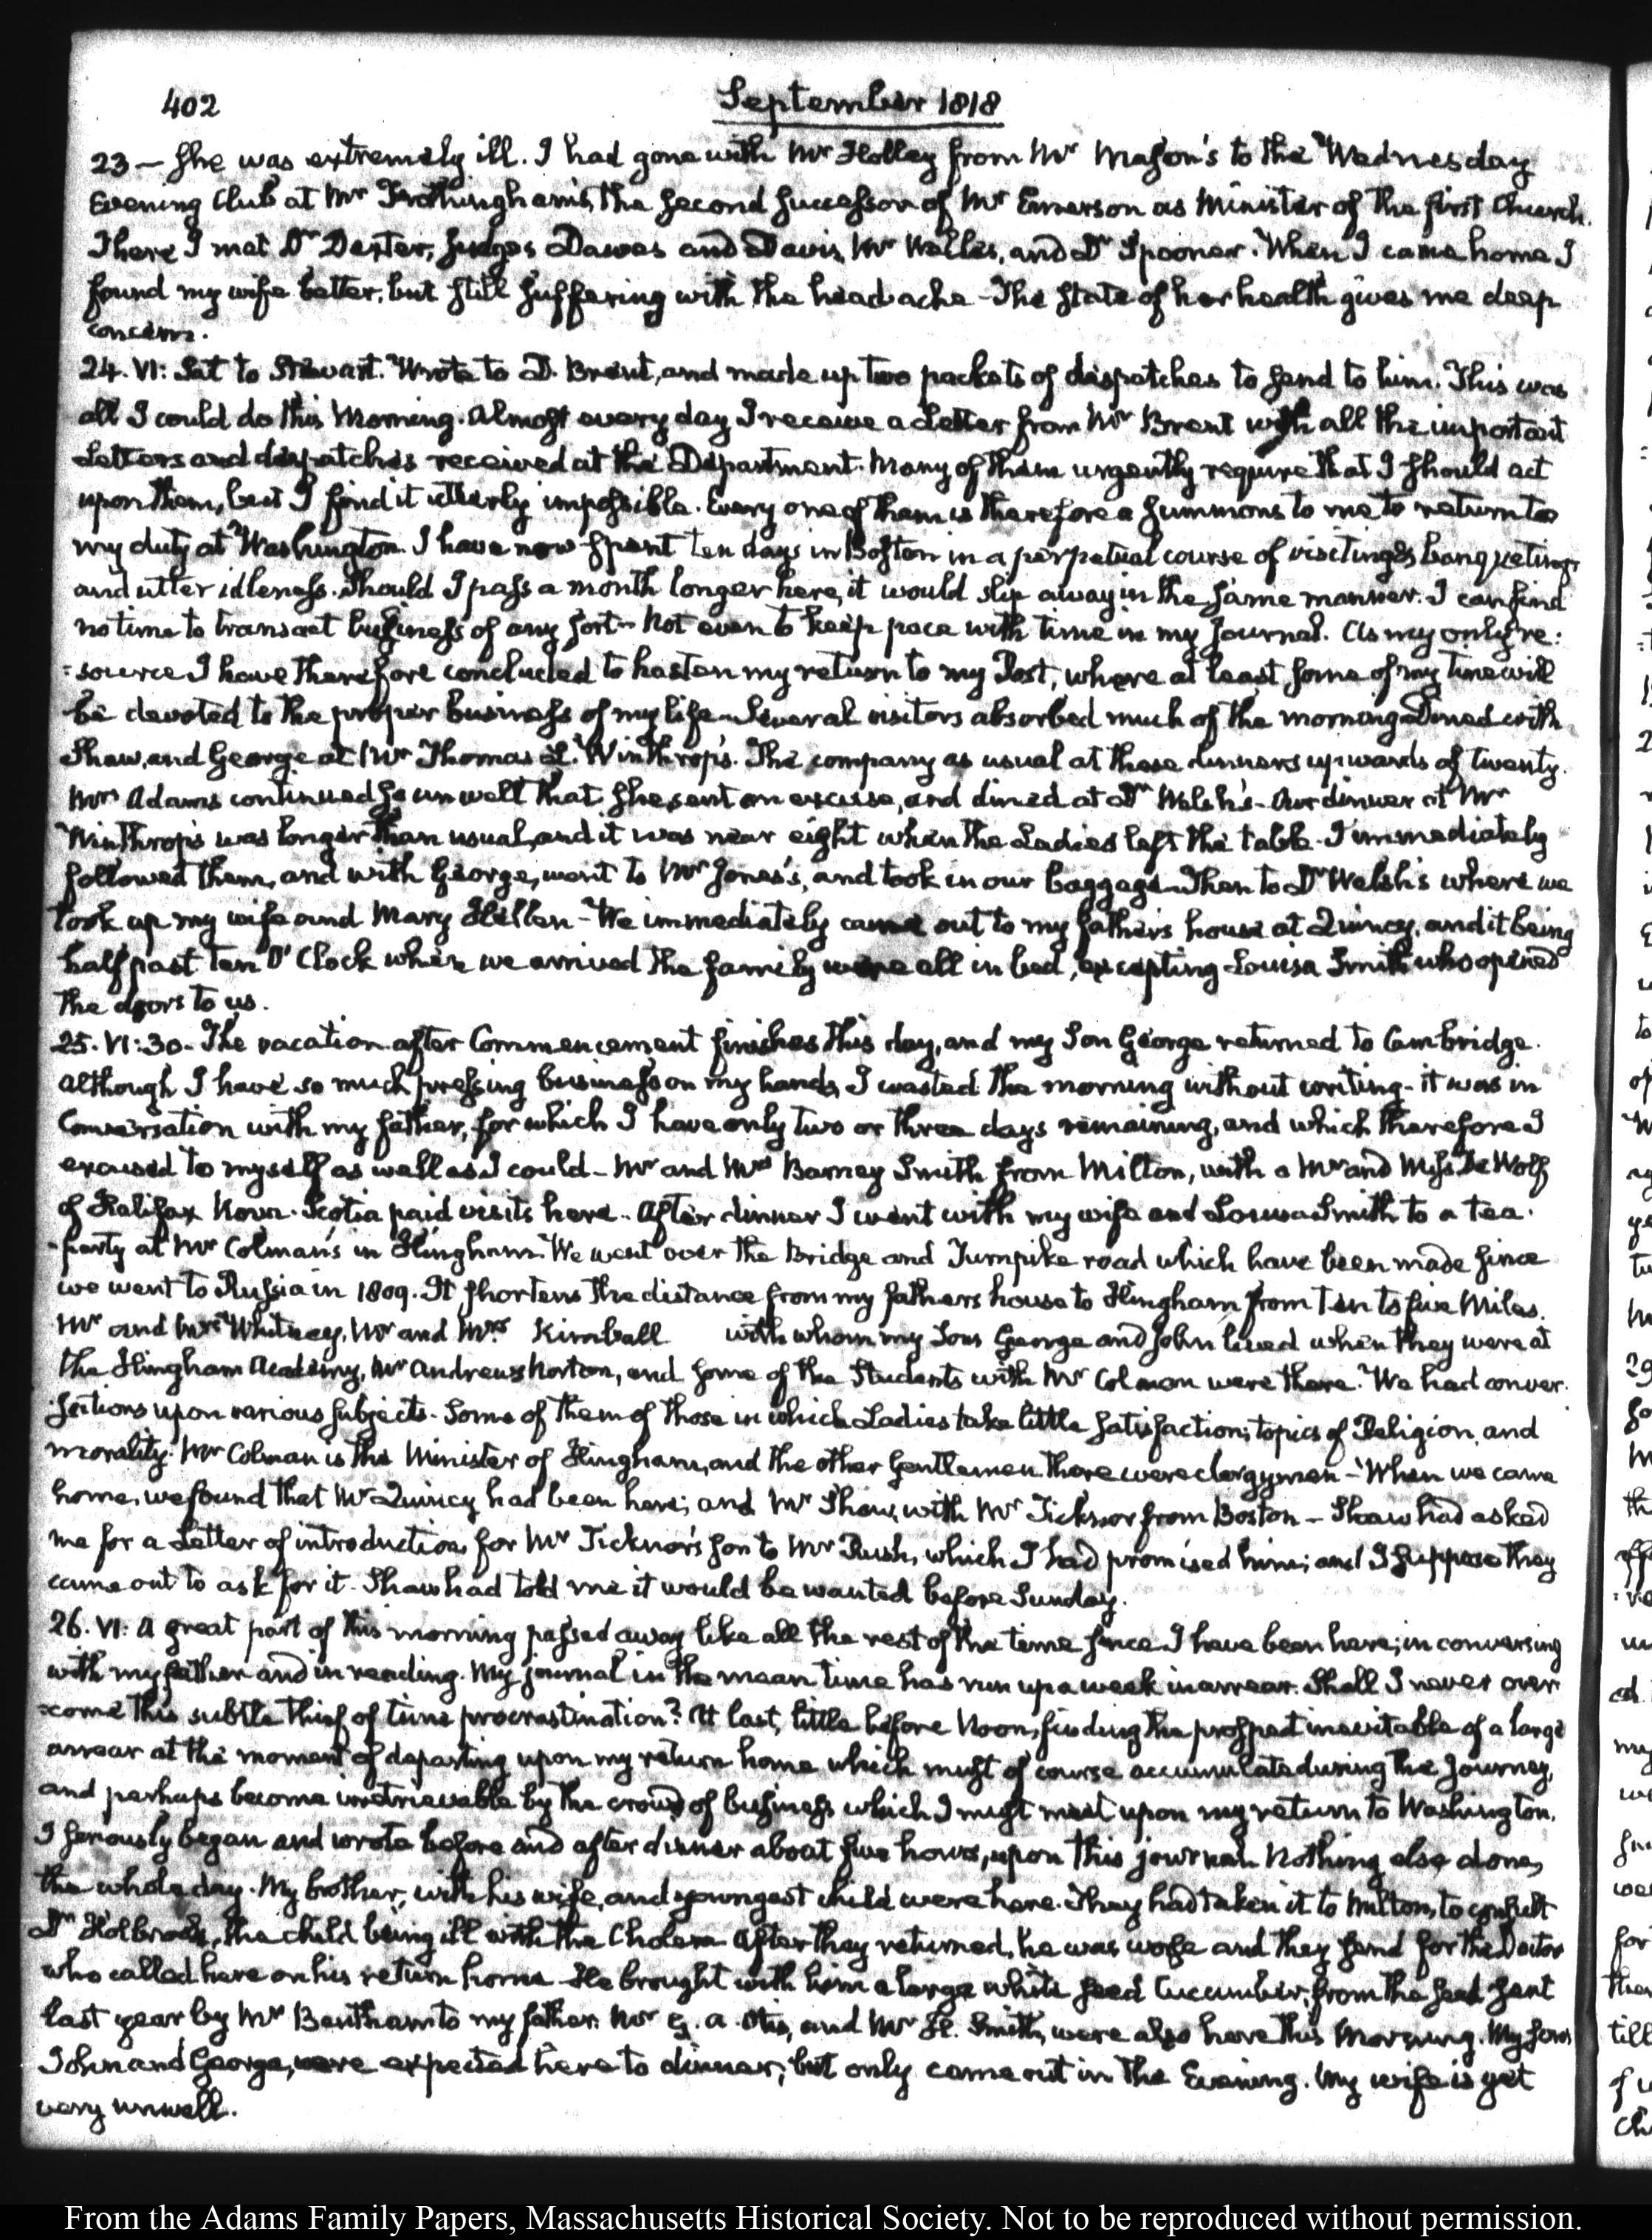 402
September 1818
23 — She was extremely ill. I had gone with Mr Holley from Mr Mason's to the Wednesday
Evening Club at Mr Frothingham's, the second successor of Mr Emerson as Minister of the first Church.
There I met Dr Dexter, Judges Dawes and Davis, Mr Wailes, and Dr Spooner. When I came home I
found my wife better, but still suffering with the head-ache — The state of her health gives me deep
concern.
24. VI: Sat to Stewart. Wrote to D. Brent, and made up two packets of dispatches to send to him. This was
all I could do this Morning. Almost every day I receive a Letter from Mr Brent with all the important
Letters and dispatches received at the Department. Many of them urgently require that I should act
upon them, but I find it utterly impossible. Every one of them is therefore a summons to me to return to
my duty at Washington. I have now spent ten days in Boston in a perpetual course of visitings, banquetings
and utter idleness. Should I pass a month longer here, it would slip away in the same manner. I can find
no time to transact business of any sort — Not even to keep pace with time in my Journal. As my only re:
:source I have therefore concluded to hasten my return to my Post, where at least some of my time will
be devoted to the proper business of my life — Several visitors absorbed much of the morning. Dined with
Shaw, and George at Mr Thomas L. Winthrop's. The company as usual at these dinners upwards of twenty.
Mrs Adams continued so unwell that she sent an excuse, and dined at Dr Welsh's — Our dinner at Mr
Winthrop's was longer than usual, and it was near eight when the Ladies left the table. I immediately
followed them, and with George, went to Mr Jones's, and took in our baggage — Then to Dr Welsh's where we
took up my wife and Mary Hellen — We immediately came out to my father's house at Quincy, and it being
half past ten O'Clock when we arrived the family were all in bed, excepting Louisa Smith who opened
the doors to us.
25. VI:30. The vacation after Commencement finishes this day, and my Son George returned to Cambridge.
Although I have so much pressing business on my hands, I wasted the morning without writing — it was in
Conversation with my father, for which I have only two or three days remaining, and which therefore I
excused to myself as well as I could — Mr and Mrs Barney Smith from Milton, with a Mr and Miss De Wolf
of Halifax Nova-Scotia paid visits here. After dinner I went with my wife and Louisa Smith to a tea-
-party at Mr Colman's in Hingham. We went over the Bridge and Turnpike road which have been made since
we went to Russia in 1809. It shortens the distance from my father's house to Hingham from ten to five Miles.
Mr and Mrs Whitney, Mr and Mrs Kimball with whom my Sons George and John lived when they were at
the Hingham Academy, Mr Andrews Norton, and some of the Students with Mr Colman were there. We had conver-
-sations upon various subjects. Some of them of those in which Ladies take little satisfaction; topics of Religion, and
morality. Mr Colman is the Minister of Hingham, and the other Gentlemen there were clergymen — When we came
home, we found that Mr Quincy had been here; and Mr Shaw, with Mr Ticknor from Boston — Shaw had asked
me for a Letter of introduction, for Mr Ticknor's son to Mr Rush, which I had promised him; and I suppose they
came out to ask for it. Shaw had told me it would be wanted before Sunday.
26. VI: A great part of this morning passed away like all the rest of the time since I have been here; in conversing
with my father and in reading. My journal in the mean time has run up a week in arrear. Shall I never over
=come this subtle thief of time procrastination? At last, little before Noon, finding the prospect inevitable of a large
arrear at the moment of departing upon my return home which must of course accumulate during the Journey,
and perhaps become irretrievable by the crowd of business which I must meet upon my return to Washington.
I seriously began and wrote before and after dinner about five hours, upon this journal. Nothing else done,
the whole day. My brother, with his wife, and youngest child were here. They had taken it to Milton, to consult
Dr Holbrook, the child being ill with the Cholera. After they returned, he was worse and they send for the Doctor
who called here on his return home. He brought with him a large white seed Cucumber, from the seed sent
last year by Mr Bentham to my father. Mr G. A. Otis, and Mr H. Smith, were also here this Morning. My sons
John and George, were expected here to dinner; but only came out in the Evening. My wife is yet
very unwell.
From the Adams Family Papers, Massachusetts Historical Society. Not to be reproduced without permission.